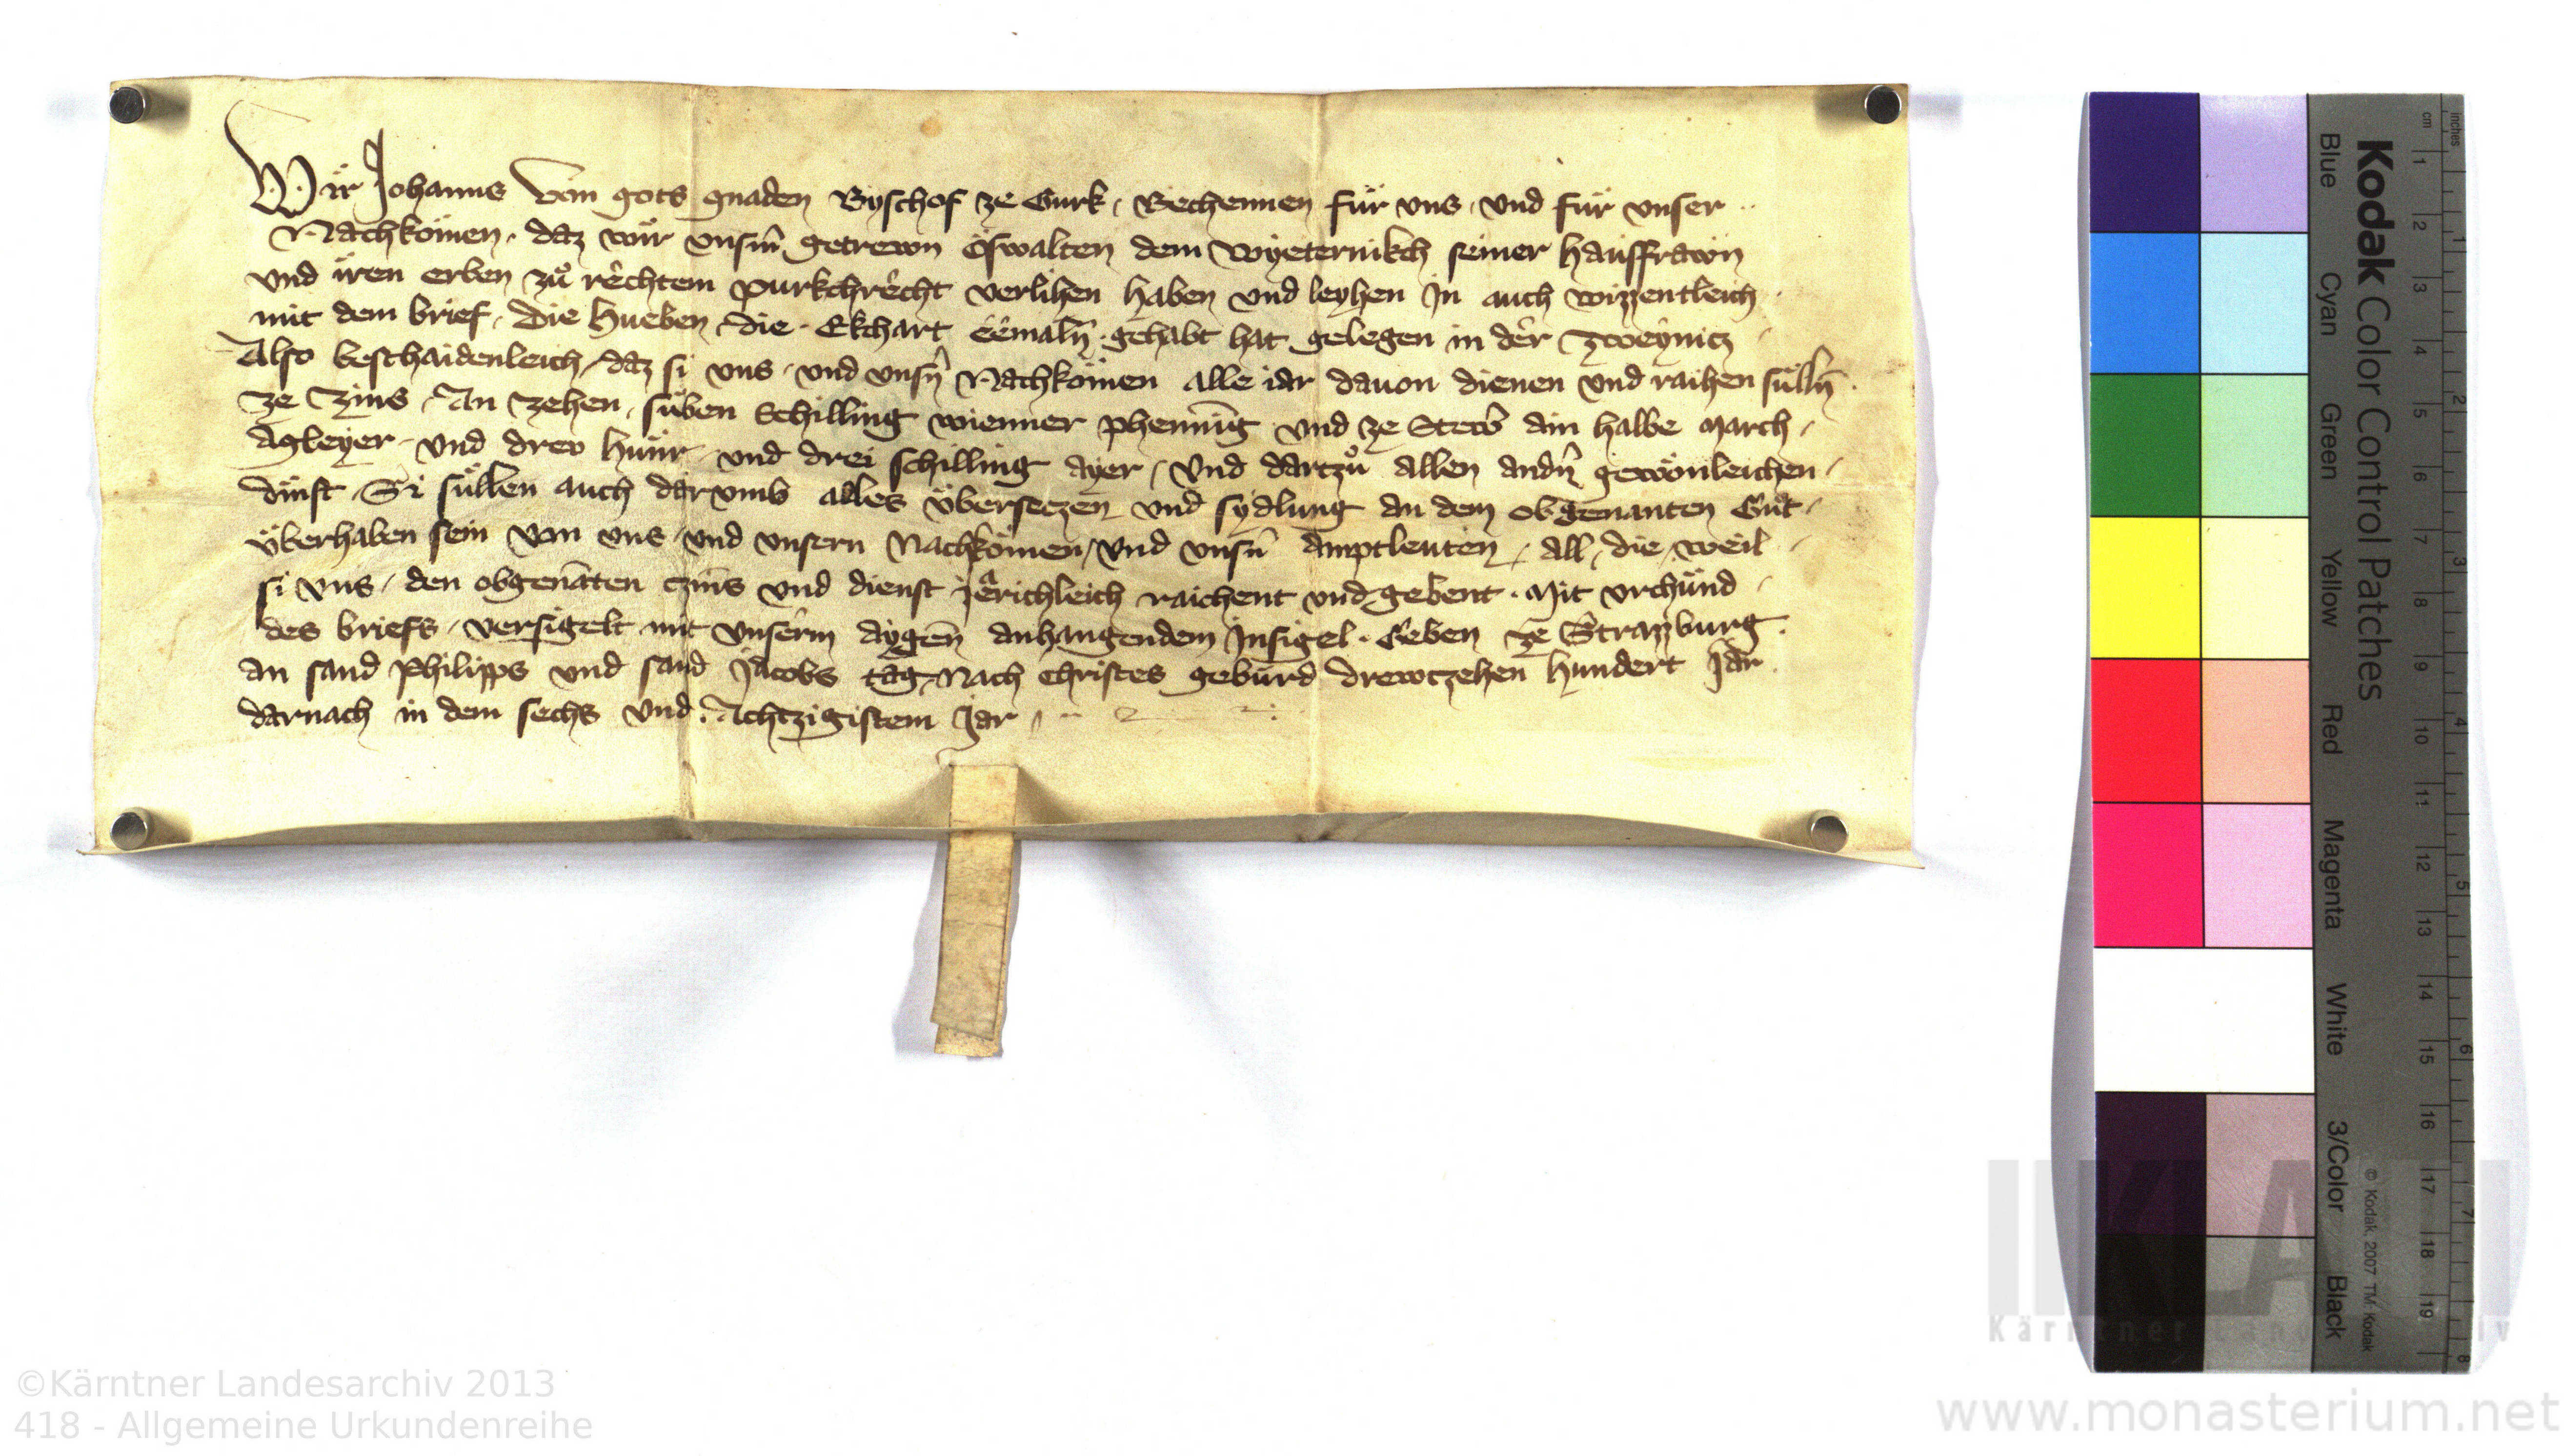 Wir Johanns von gots gnaden Byschof ze Gurk, Bechennen für vns, vnd für vnser
Nachkömen, daz wir vnsm̄ getrewn Oswalten dem Wyeternikch seiner hausffrawn
vnd iren erben zů rêchtem purkchrêcht verlihen haben vnd leyhen In auch wizzentleich
mit dem brief, die Hueben die Ekchart eêmaln̄ gehabt hat gelegen in dêr Zweynicz
Also beschaidenleich, daz si vns, vnd vnsn̄ Nachkömen alle iar dauon dienen vnd raihen sülln̄
ze Czins, An zehen, süben Schilling wienner phenning vnd ze Stewr ain halbe March,
Agleyer, vnd drew hünr, vnd drei schilling ayer, Vnd dartzů allen andn̄ gewönleichen,
dinst, Si süllen auch darvmb alles überseczen vnd sydlung an dem obgenanten Gut,
überhaben sein von vns, vnd vnsern Nachkömen, vnd vnsn̄ Amptleuten, all, die, weil
si vns, den obgenāten czins vnd dienst jerichleich raichent vnd gebent. Mit vrchünd
des briefs, versigelt mit vnserm aygen̄ anhangendem Insigel. Geben ze Strazburg.
an sand Philipps vnd sand Jacobs tag, Nach Christes gebürd drewczehen hundert Jar
darnach in dem sechs vnd Achtzigistem Jar,
Kodak Color Control Patches
Blue Cyan Green Yellow Red Magenta White 3/Color Black
© Kodak, 2007 TM: Kodak
cm 1 2 3 4 5 6 7 8 9 10 11 12 13 14 15 16 17 18 19
inches 1 2 3 4 5 6 7 8
KLA
©Kärntner Landesarchiv 2013
418 - Allgemeine Urkundenreihe
www.monasterium.net